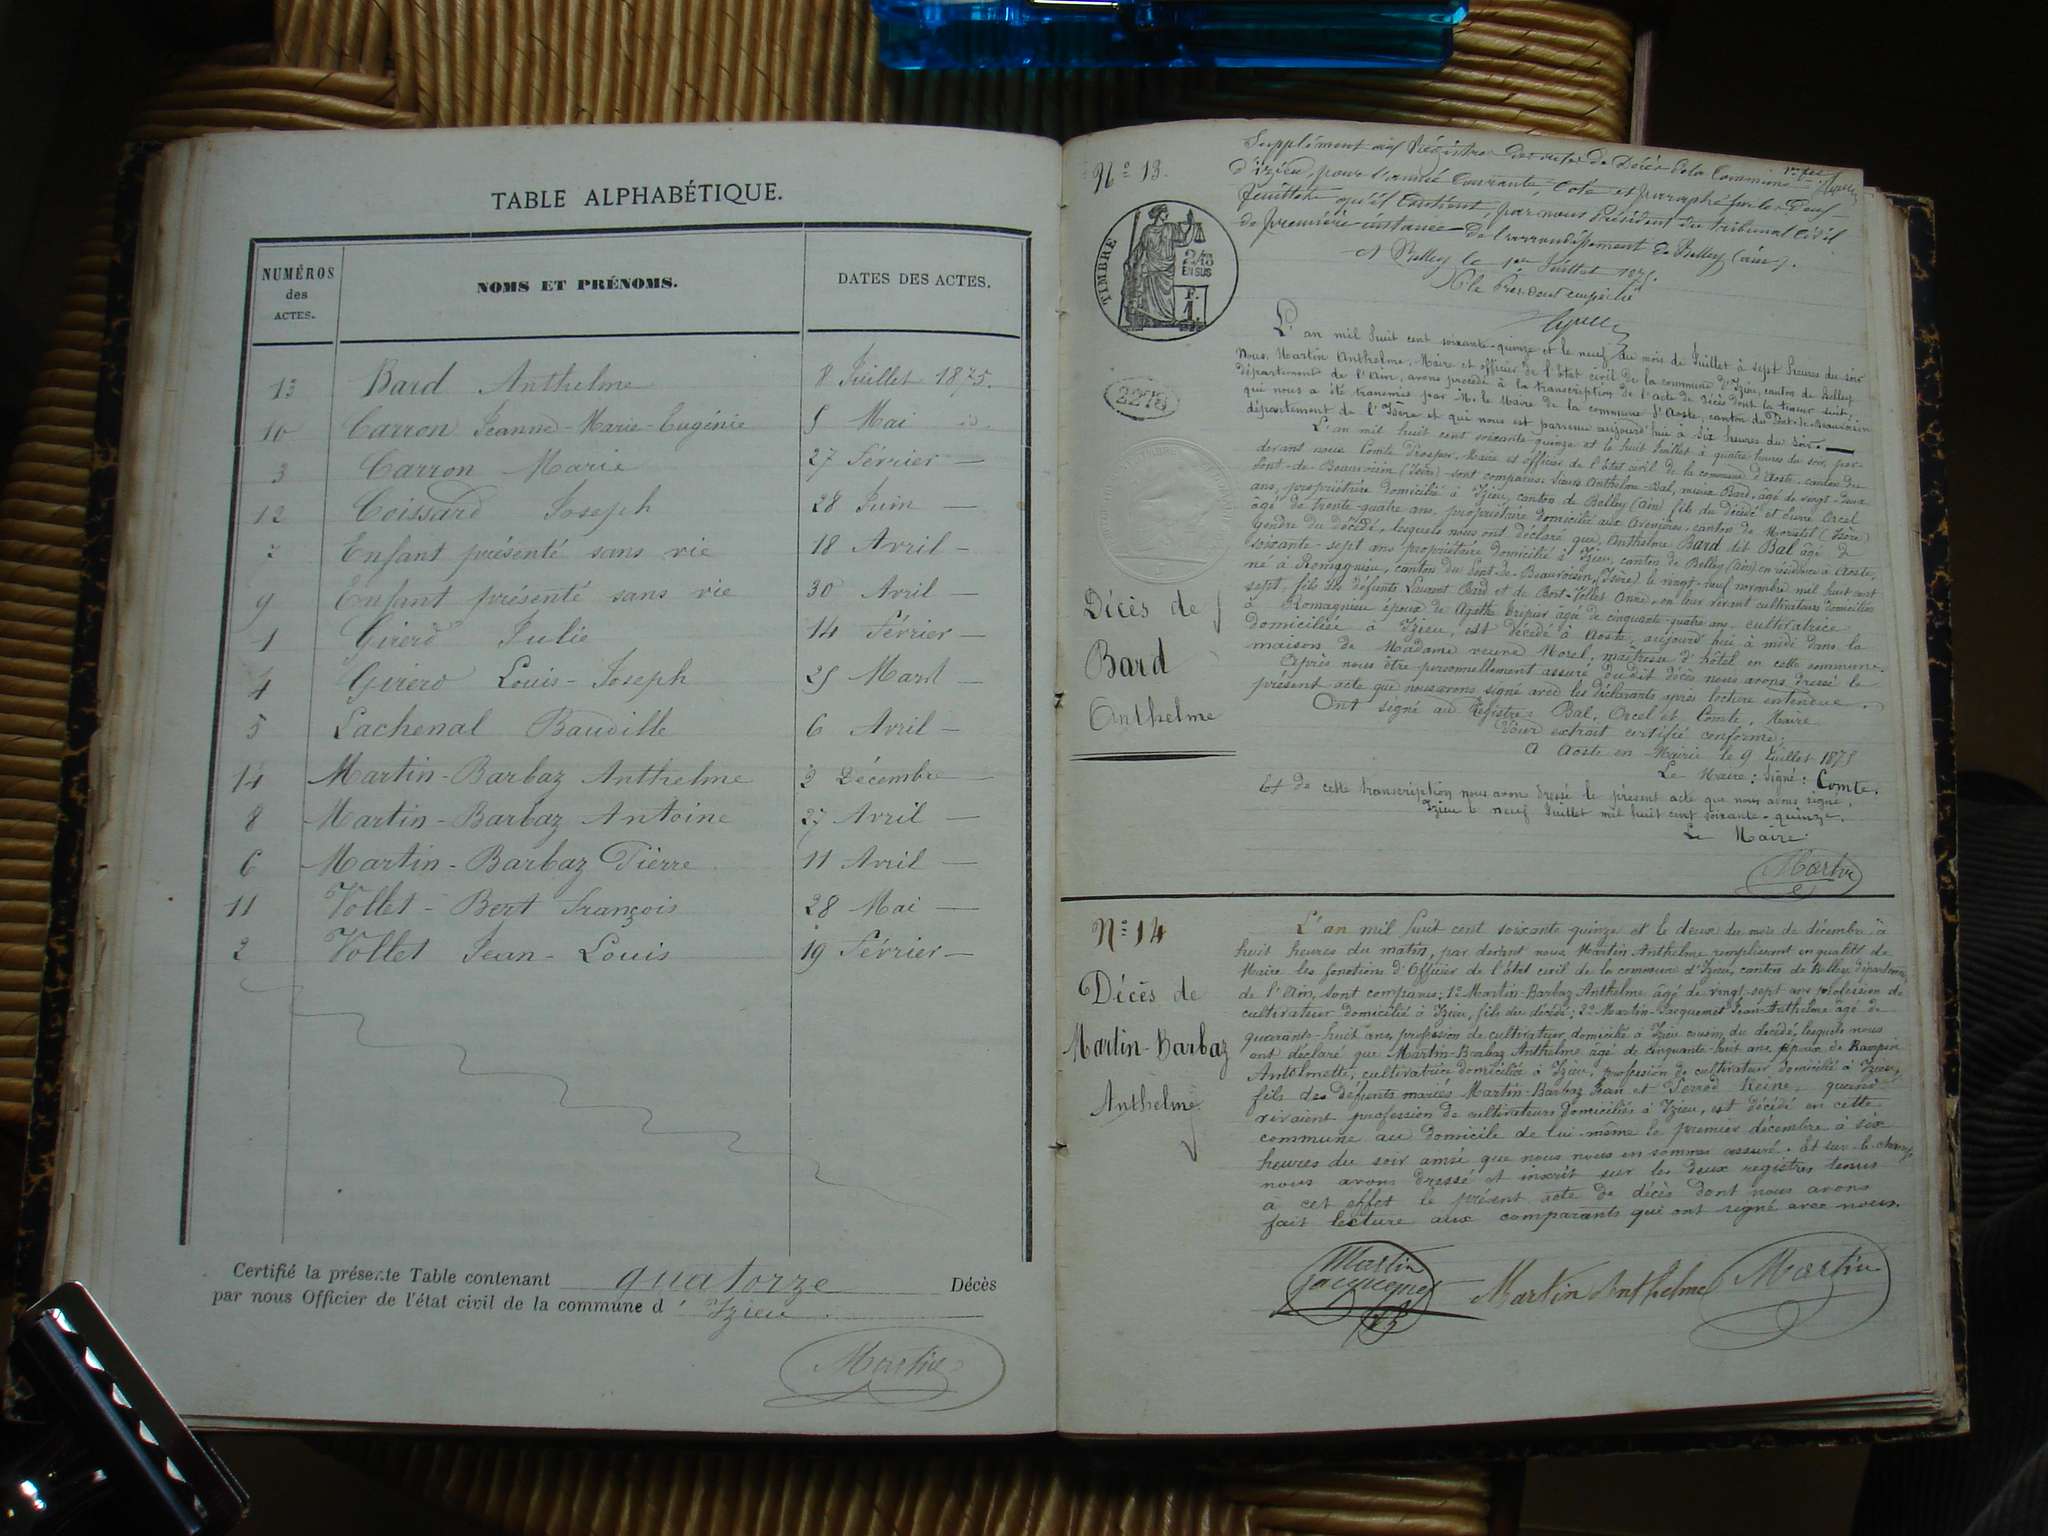 TABLE ALPHABÉTIQUE.
NUMÉROS des ACTES. NOMS ET PRÉNOMS. DATES DES ACTES.
13 Bard Anthelme 8 Juillet 1875.
10 Carron Jeanne-Marie-Eugénie 5 Mai d°.
3 Carron Marie 27 Février —
12 Coissard Joseph 28 Juin —
7 Enfant présenté sans vie 18 Avril —
9 Enfant présenté sans vie 30 Avril —
1 Girerd Julie 14 Février —
4 Girerd Louis-Joseph 25 Mars —
5 Lachenal Baudille 6 Avril —
14 Martin-Barbaz Anthelme 2 Décembre —
8 Martin-Barbaz Antoine 27 Avril —
6 Martin-Barbaz Pierre 11 Avril —
11 Vollet-Bert François 28 Mai —
2 Vollet Jean-Louis 19 Février —
Certifié la présente Table contenant quatorze Décès
par nous Officier de l'état civil de la commune d' Izieu
Martin
N° 13.
Supplément aux Registres des actes de Décès de la Commune
d'Izieu, pour l'année Courante, Coté et paraphé sur les Deux
feuillets qu'il Contient, par nous Président du tribunal Civil
de première instance de l'arrondissement de Belley (ain).
A Belley le 1er Juillet 1875.
P. le Président empêché
TIMBRE
2/10 EN SUS
F. 1.
2278
L'an mil huit cent soixante-quinze et le neuf du mois de Juillet à sept heures du soir
Nous, Martin Anthelme, Maire et officier de l'état civil de la commune d'Izieu, canton de Belley
département de l'Ain, avons procédé à la transcription de l'acte de décès dont la teneur suit:
qui nous a été transmis par M. le Maire de la commune d'Aoste, canton du Pont-de-Beauvoisin
département de l'Isère et qui nous est parvenu aujourd'hui à six heures du soir.
L'an mil huit cent soixante-quinze et le huit Juillet à quatre heures du soir, par-
devant nous Comte Prosper, Maire et officier de l'état civil de la commune d'Aoste, canton du
Pont-de-Beauvoisin (Isère) sont comparus: Sieurs Anthelme Bal, mieux Bard, âgé de vingt-deux
ans, propriétaire domicilié à Izieu, canton de Belley (Ain) fils du décédé et Orcel
âgé de trente-quatre ans, propriétaire domicilié aux Avenières, canton de Morestel (Isère)
gendre du décédé, lesquels nous ont déclaré que, Anthelme Bard dit Bal âgé de
soixante-sept ans propriétaire domicilié à Izieu, canton de Belley (Ain) en résidence à Aoste,
né à Romagnieu, canton du Pont-de-Beauvoisin, (Isère) le vingt-neuf novembre mil huit cent
sept, fils des défunts Laurent Bard et de en leur vivant cultivateurs domiciliés
à Romagnieu époux de Agathe âgée de cinquante-quatre ans, cultivatrice
domiciliée à Izieu, est décédé à Aoste, aujourd'hui à midi dans la
maison de Madame veuve Morel, maîtresse d'hôtel en cette commune.
Après nous être personnellement assuré dudit décès nous avons dressé le
présent acte que nous avons signé avec les déclarants après lecture entendue.
Ont signé au Registre: Bal, Orcel et Comte, Maire
Pour extrait certifié conforme;
A Aoste en Mairie le 9 Juillet 1875
Le Maire: Signé: Comte.
Et de cette transcription nous avons dressé le présent acte que nous avons signé.
Izieu le neuf Juillet mil huit cent soixante-quinze.
Le Maire:
Martin
Décès de
Bard
Anthelme
N° 14
Décès de
Martin-Barbaz
Anthelme
L'an mil huit cent soixante quinze et le deux du mois de décembre, à
huit heures du matin, par devant nous Martin Anthelme remplissant en qualité de
Maire les fonctions d'Officier de l'état civil de la commune d'Izieu, canton de Belley département
de l'Ain, sont comparus: 1° Martin-Barbaz Anthelme âgé de vingt-sept ans profession de
cultivateur domicilié à Izieu, fils du décédé; 2° Martin-Jacquemet Jean-Anthelme âgé de
quarante-huit ans, profession de cultivateur, domicilié à Izieu cousin du décédé, lesquels nous
ont déclaré que Martin-Barbaz Anthelme âgé de cinquante-huit ans, époux de Rampin
Antelmette, cultivatrice domiciliée à Izieu, profession de cultivateur domicilié à Izieu,
fils des défunts mariés Martin-Barbaz Jean et Perrod Reine, quand
vivaient profession de cultivateurs domiciliés à Izieu, est décédé en cette
commune au domicile de lui-même le premier décembre à six
heures du soir ainsi que nous nous en sommes assuré. Et sur-le-champ
nous avons dressé et inscrit sur les deux registres tenus
à cet effet le présent acte de décès dont nous avons
fait lecture aux comparants qui ont signé avec nous.
Martin Jacquemet Martin Anthelme Martin